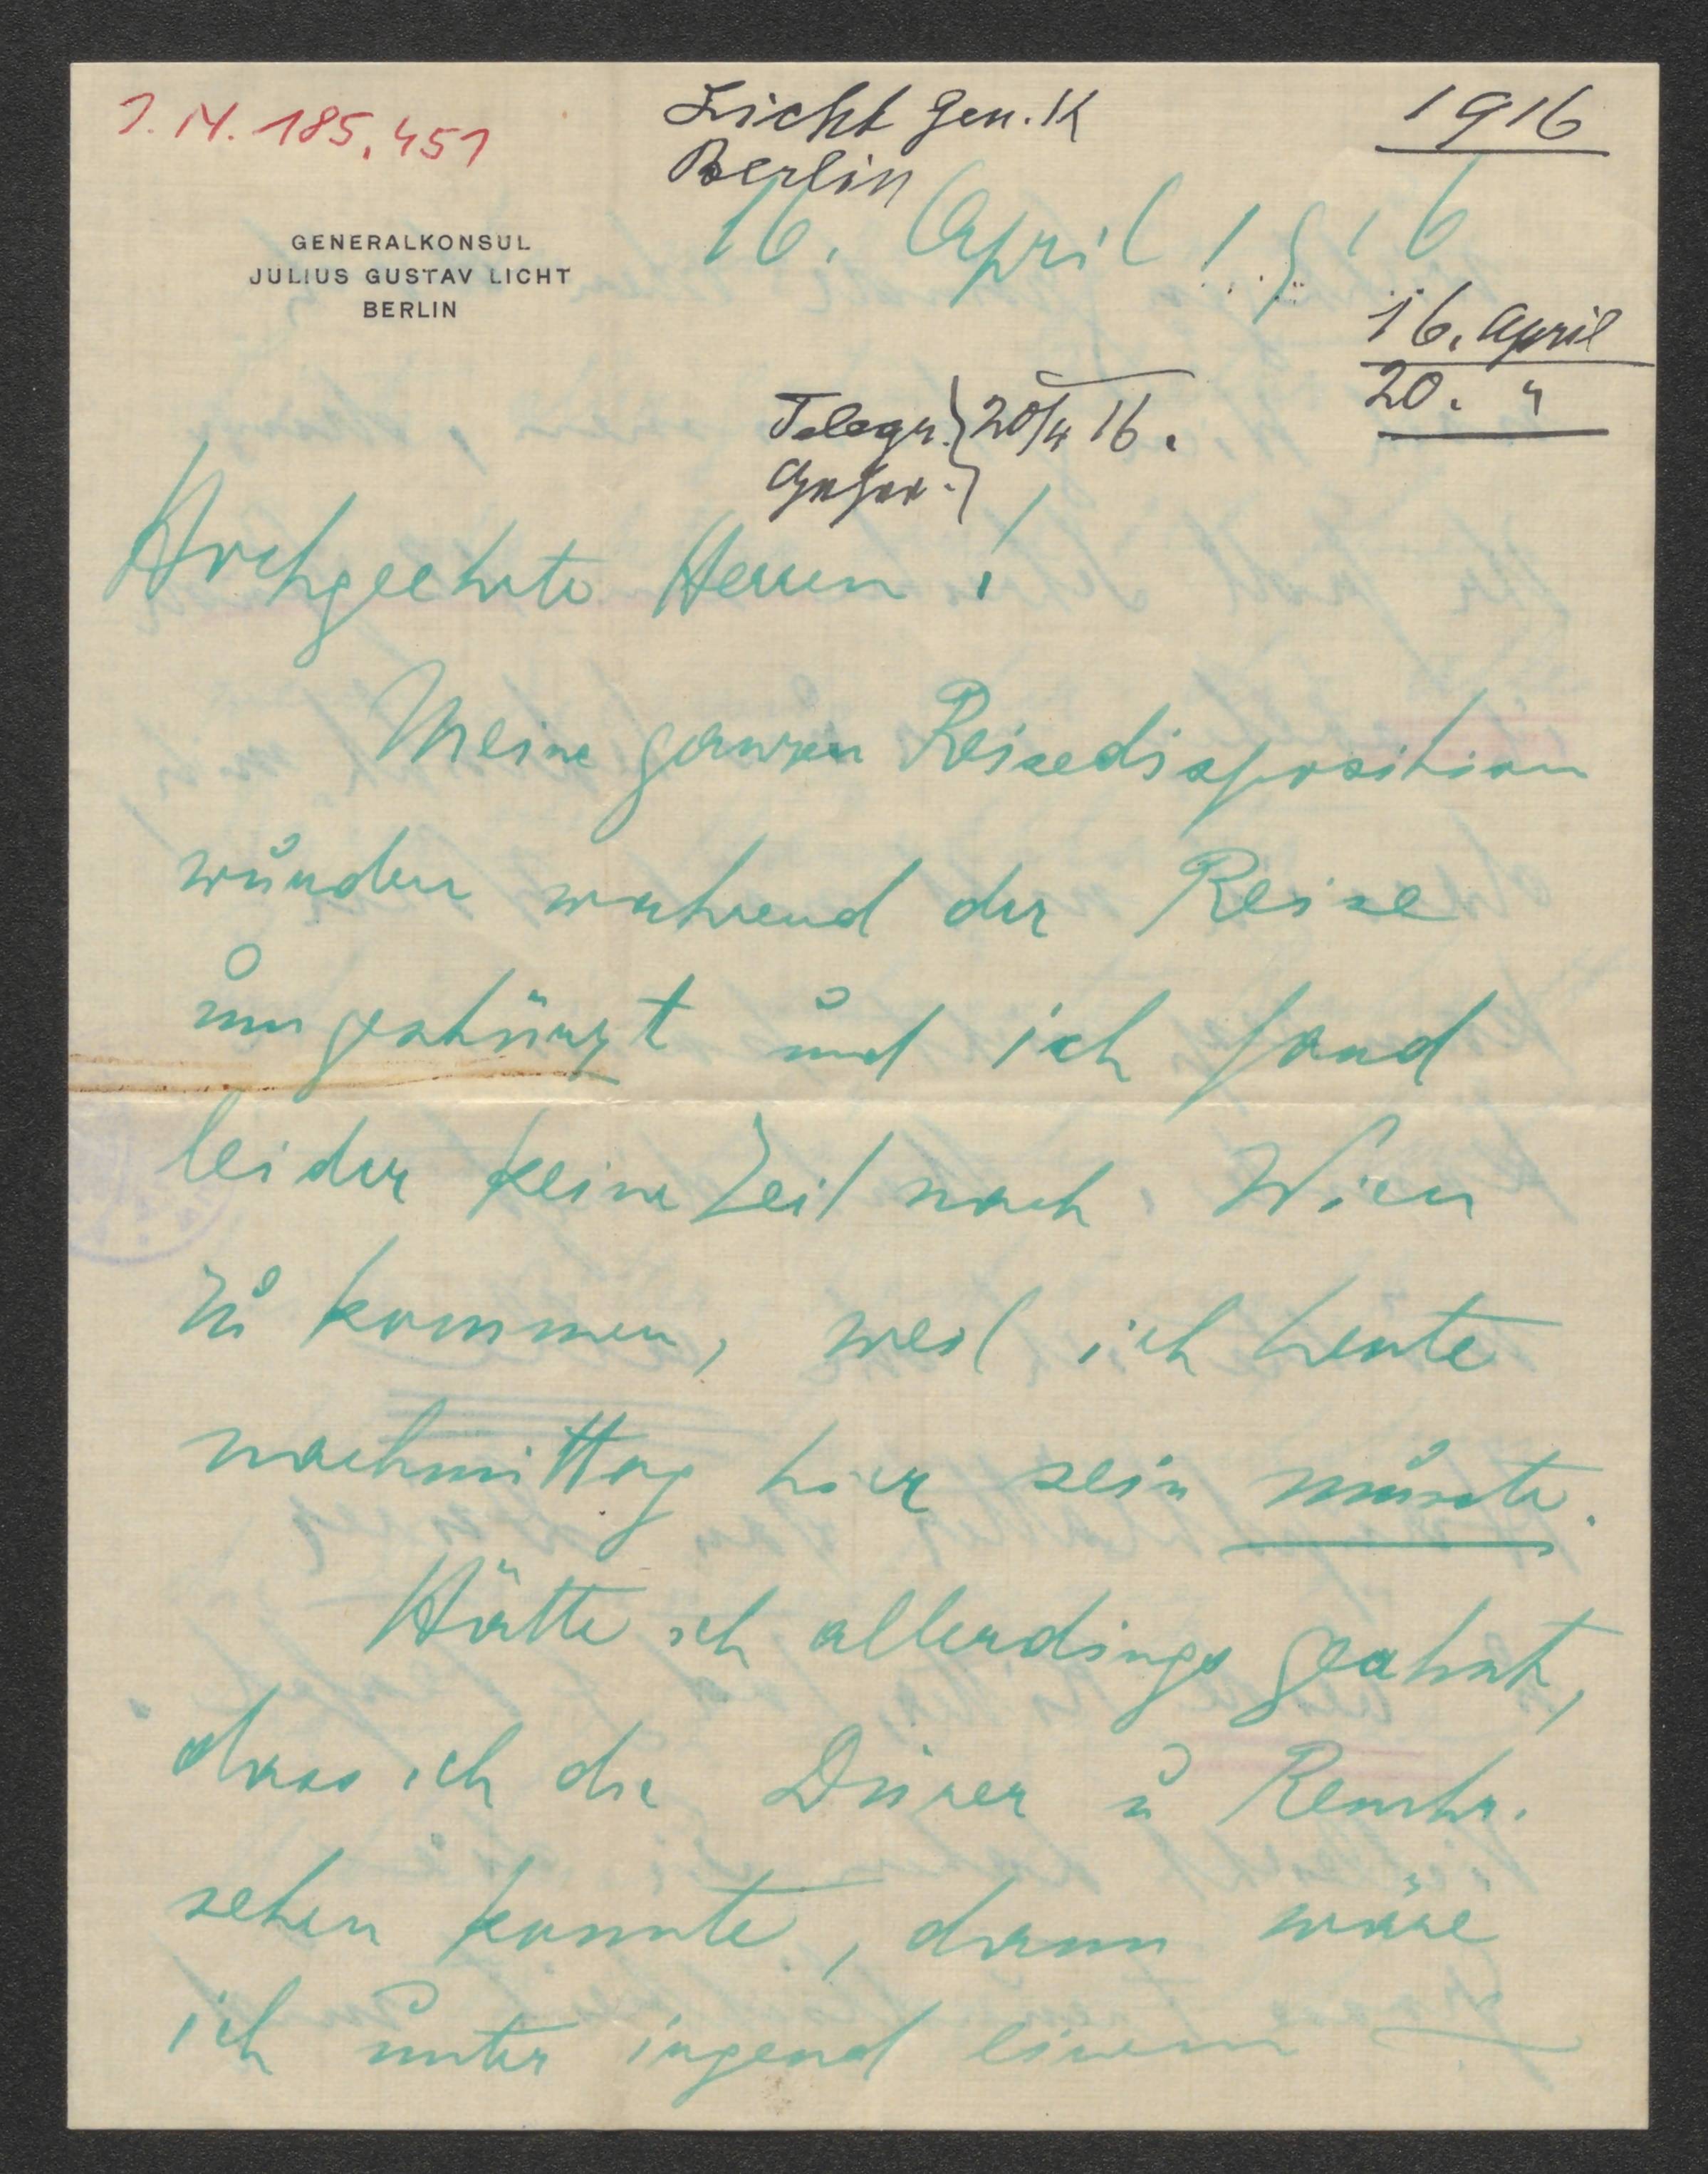 I. N. 185.451
Licht Gen. K
Berlin
1916
GENERALKONSUL
JULIUS GUSTAV LICHT
BERLIN
16. April 1916
16. April
20. "
Telegr. } 20/4 16.
Hochgeehrte Herren!
Meine ganzen Reisedisposition
wurden während der Reise
umgestürzt und ich fand
leider keine Zeit nach Wien
zu kommen, weil ich heute
nachmittag hier sein musste.
Hätte ich allerdings geahnt,
dass ich die Dürer u Rembr.
sehen konnte, dann wäre
ich unter irgend einem